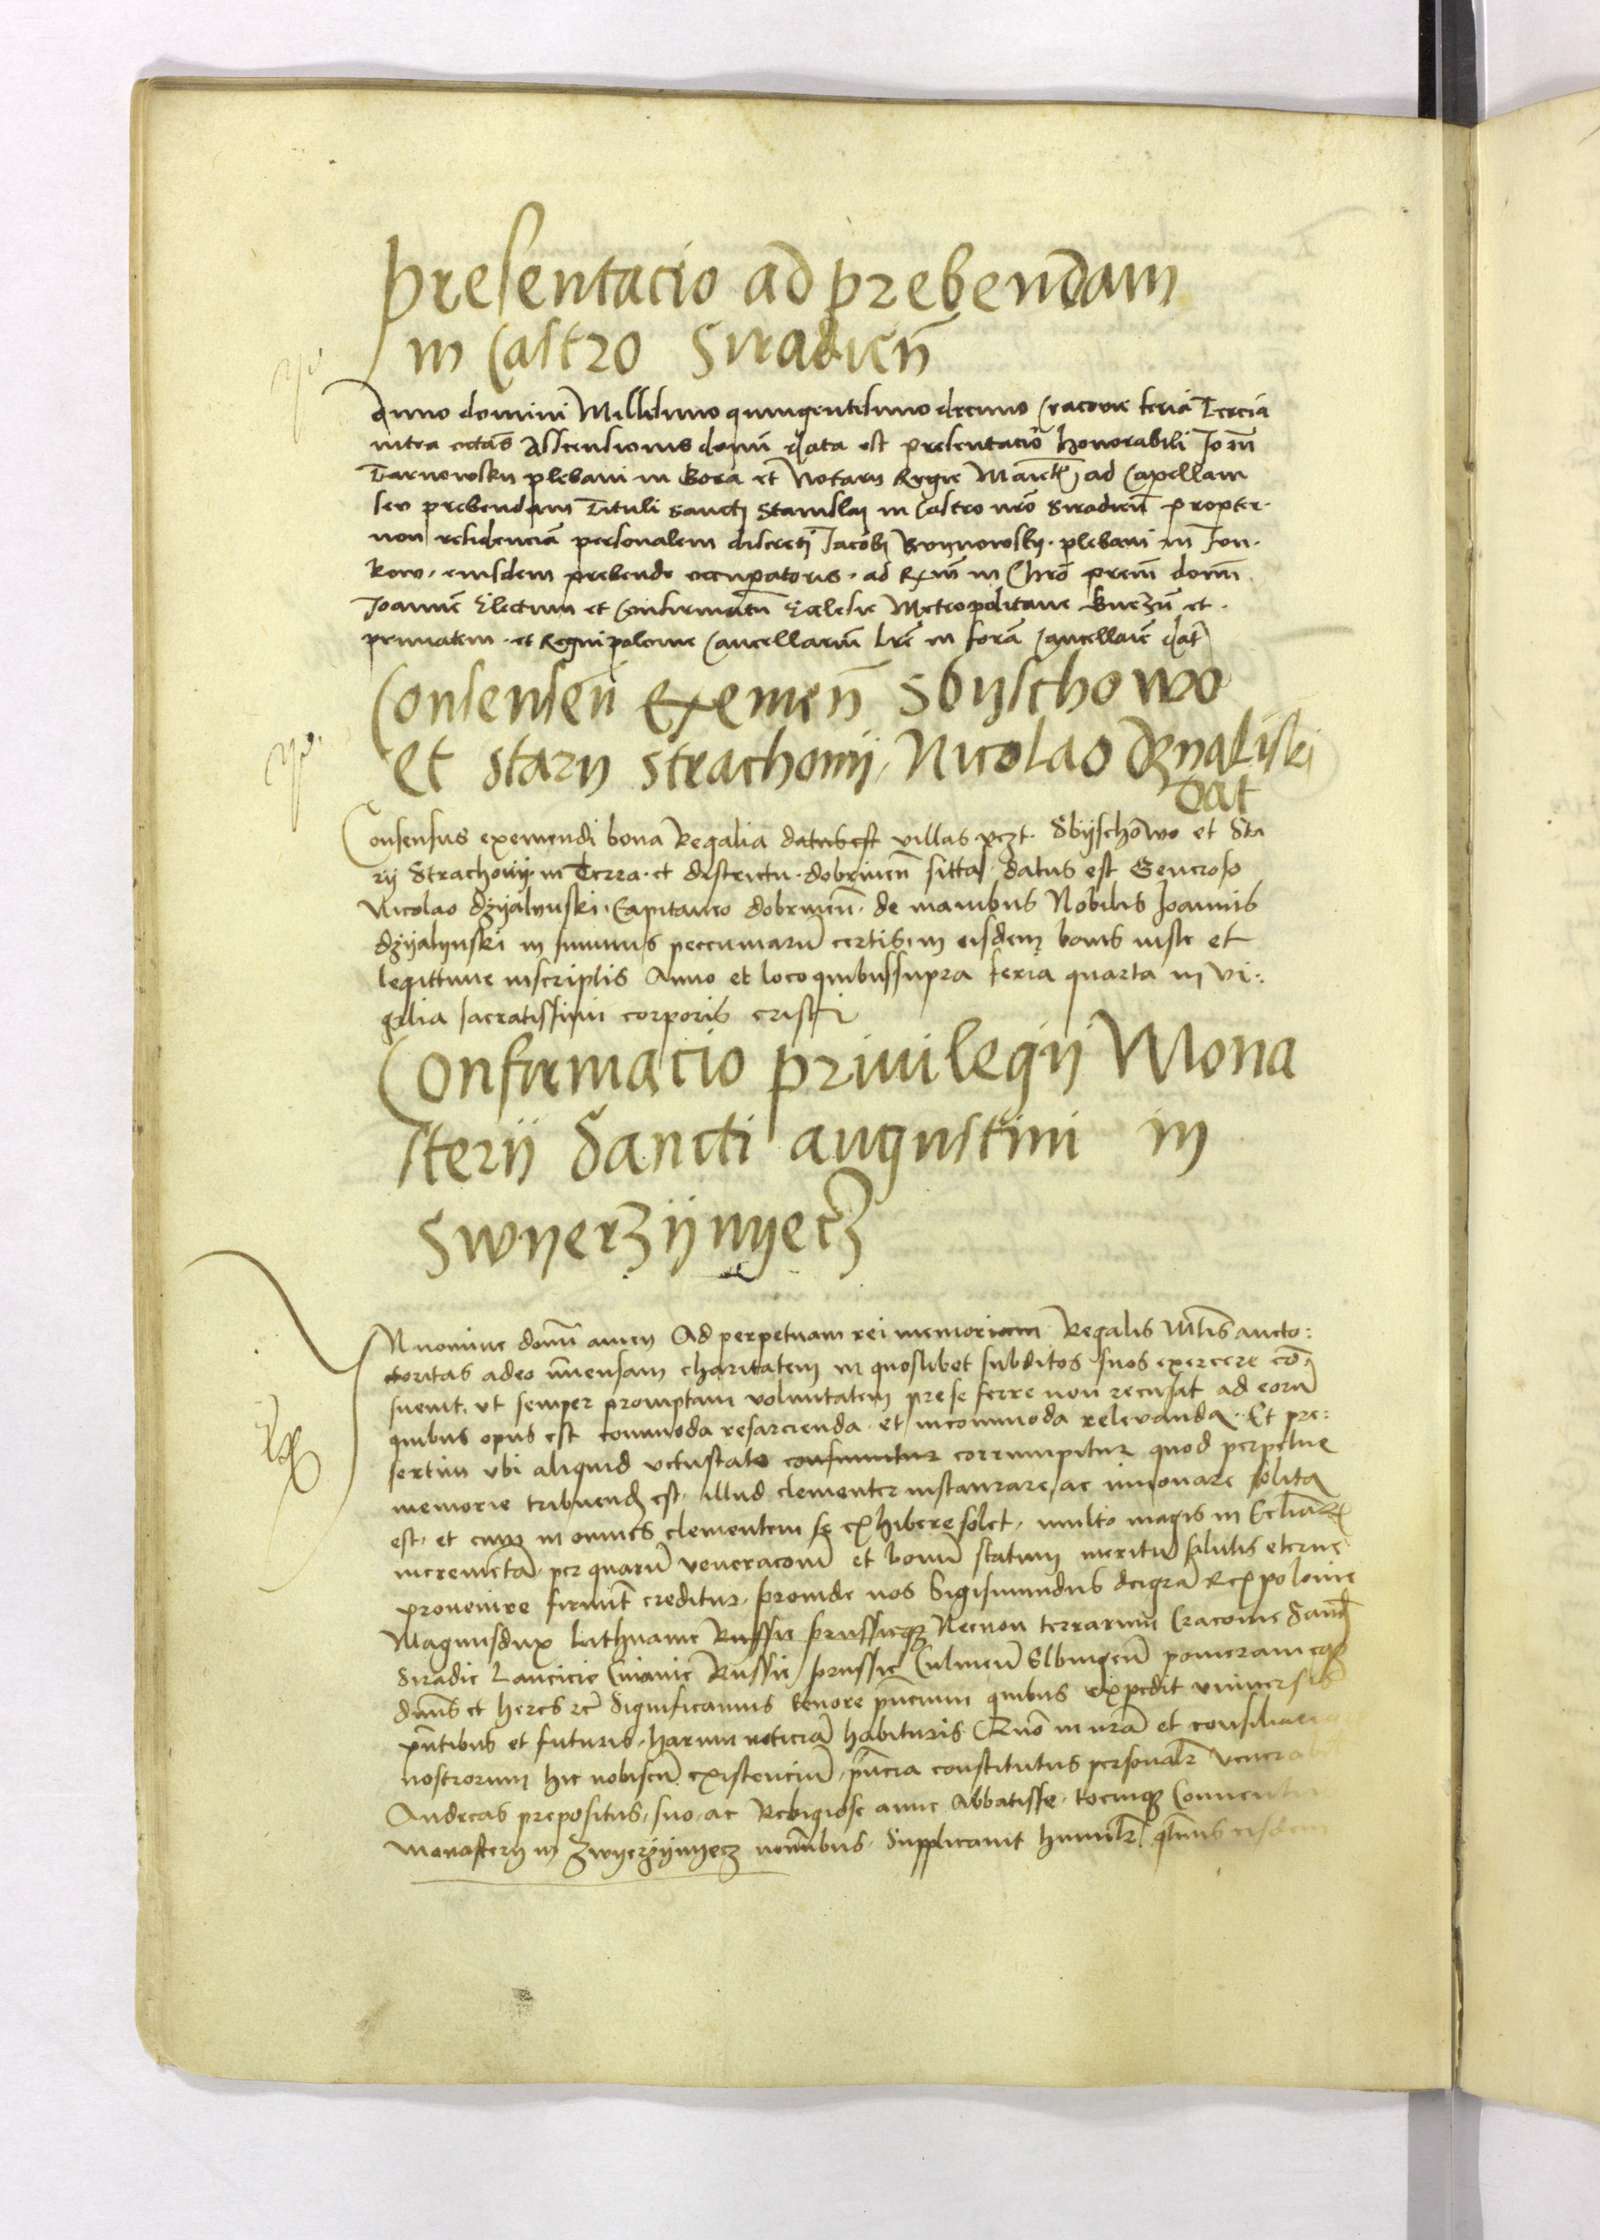 Presentacio ad prebendam
in Castro Siradien̄
Anno domini Millesimo quingentesimo decimo Cracovie feria Tercia
intra octãs Assensionis domĩ data est presentacio honorabili Ioañ
Tarnowskij plebani in Gora et Notarij Regie Maiestẽ ad Capellam
seu prebendam Tituli sancti Stanislai in Castro nrõ Siradien̄ propter
non residenciã personalem discreti Iacobi plebani in Ion-
kow, eiusdem prebende occupatoris, ad Rxm̃ in Chrõ prem̃ dom̃
Ioannẽ Electum et Confirmatũ Ecclesie Metropolitane Gneznen̄ et
primatem et Regni polonie Cancellariũ lrẽ in formã Cancellarie dat̃
Consensen̄ exemen̄ Sbijschowo
et Starij Strachowij, Nicolao Dzyaliski
dat
Consensus exemendi bona Regalia datus est villas vczt Sbijschowo et Sta
rij Strachowij in Terra et districtu dobrinen̄ sittas datus est Generoso
Nicolao dzijalynski Capitaneo dobrinen̄ de manibus Nobilis Joannis
dzijalynski in summis peccuniarũ certis in eisdem bonis iuste et
legittime inscriptis Anno et loco quibussupra feria quarta in vi:
gilia sacratissimi corporis cristi
Confirmacio privilegij Mona
sterij Sancti augustini in
Swyerzijnyecz
In nomine domĩ amen Ad perpetuam rei memoriam Regalis Mtĩs aucto:
toritas adeo immensam charitatem in quoslibet subditos suos exercere cõ
suevit, ut semper promptam voluntatem prese ferre non recusat ad eorũ
quibus opus est commoda resarcienda et incommoda relevanda. Et pre:
sertim ubi aliquid vetustate consumitur corrumpitur quod perpetue
memorie tribuendũ est, illud clementer instaurare ac innovare solita
est, et cum in omnes clementem se exhibere solet, multo magis in Eccliar
incrementa, per quarũ veneracionẽ et bonũ statum meritũ salutis eterne
provenire firmit̃ creditur, proinde nos Sigismundus dei grã Rex polonie
Magnusdux Lithuanie Russie prussieq̨ Necnon terrarum Cracovie Sand
Siradie Lancicie Cuiavie Russie prussie Culmen̄ Elbingen̄ pomeranieq̨
dnũs et heres etc̃ Significamus tenore pñcium quibus expedit universis
pñtibus et futuris, harum noticiã habituris Quõ in nrã et consiliarior
nostrorum hic nobiscũ existenciũ, pñcia constitutus personalr̃ Venerab
Andreas prepositus, suo ac Religiose anne Abbatisse, tociusq̨ Conventu
monasterij in Zwyerzijnyecz nomĩbus, Supplicavit humilr̃ qtẽnus eisdem